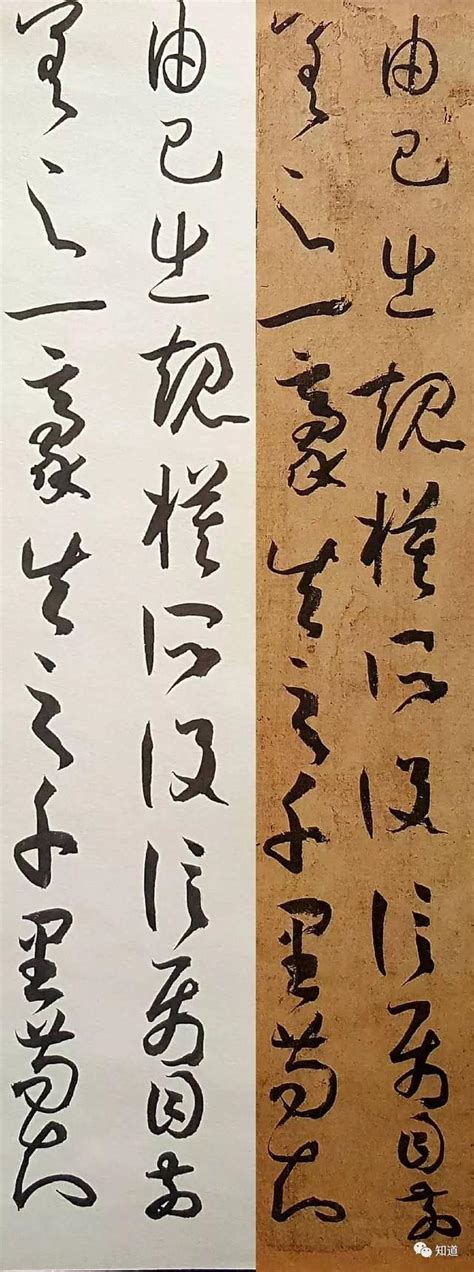 由己出規模所設信屬目前
差之一豪失之千里苟知
由己出規模所設信屬目前
差之一豪失之千里苟知
知道